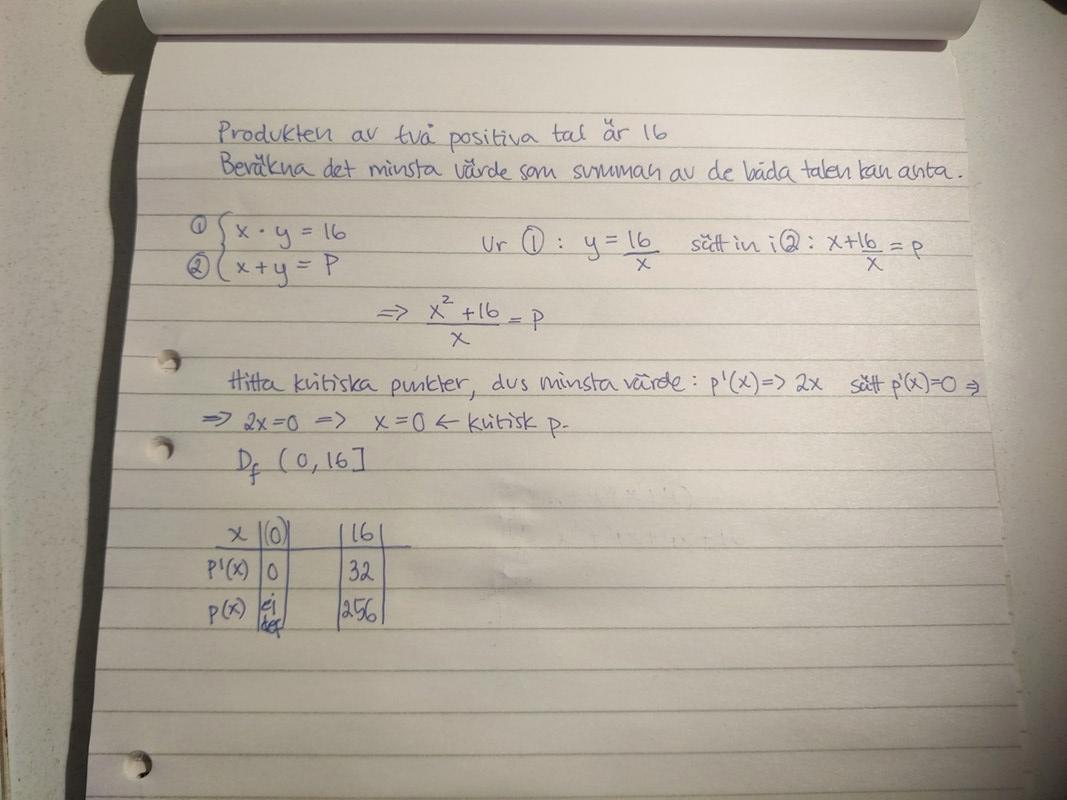 Produkten av två positiva tal är 16
Beräkna det minsta värde som summan av de båda talen kan anta.
① { x · y = 16   Ur ①: y = 16/x   sätt in i ②: x+16/x = P
② { x + y = P
=> (x² + 16)/x = P
Hitta kritiska punkter, dvs minsta värde: p'(x) => 2x   sätt p'(x)=0 =>
=> 2x=0 => x=0 ← kritisk p.
Df (0, 16]
x |(0)| |16|
p'(x) | 0 | | 32 |
p(x) | ej def | | 256 |